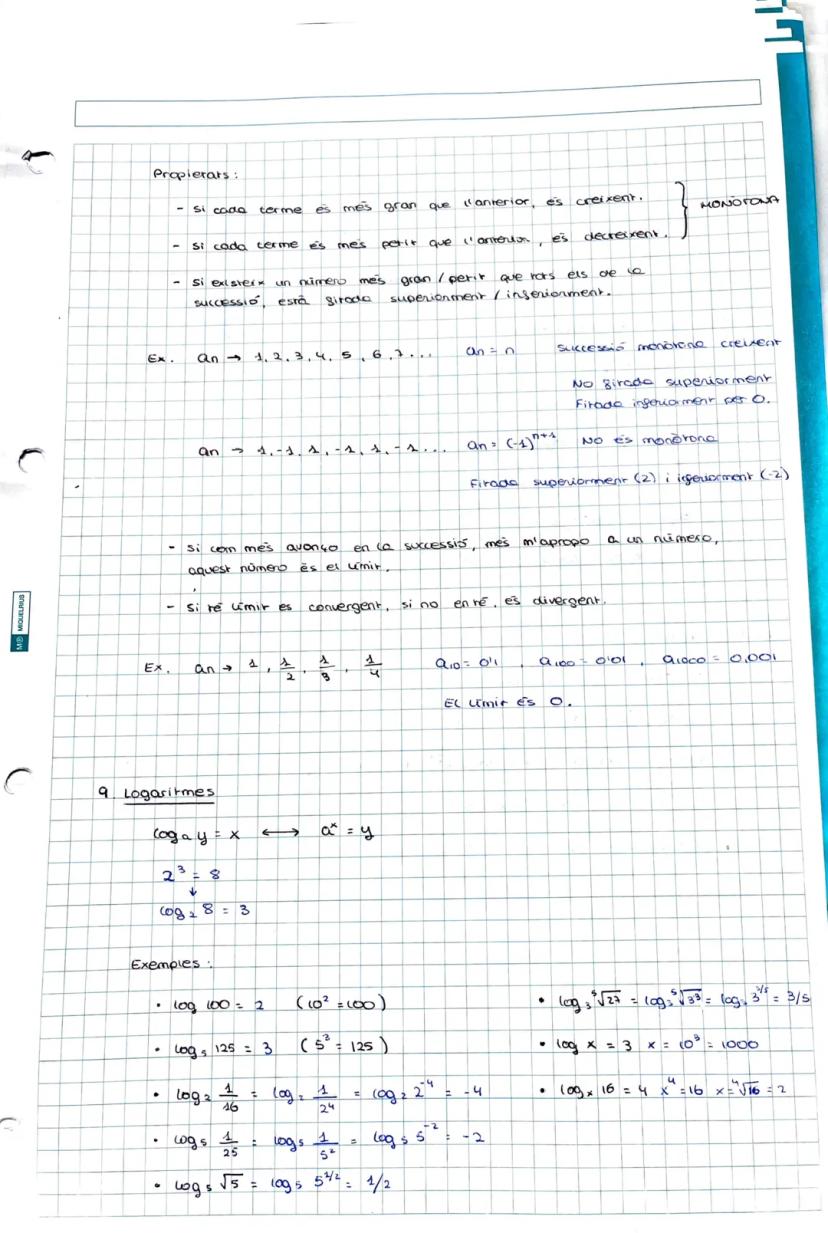 Propietats:
- Si cada terme és més gran que l'anterior, és creixent.
- Si cada terme és més petit que l'anterior, és decreixent.
MONÒTONA
- Si existeix un número més gran / petit que tots els de la
successió, està fitada superiorment / inferiorment.
Ex. an → 1, 2, 3, 4, 5, 6, 7... an = n Successió monòtona creixent
No fitada superiorment
Fitada inferiorment per 0.
an → 1, -1, 1, -1, 1, -1... an = (-1)^{n+1} No és monòtona
Fitada superiorment (2) i inferiorment (-2)
- Si com més avanço en la successió, més m'apropo a un número,
aquest número és el límit.
- Si té límit es convergent, si no en té, és divergent.
Ex. an → 1, 1/2, 1/3, 1/4 a₁₀ = 0'1, a₁₀₀ = 0'01, a₁₀₀₀ = 0,001
El límit és 0.
MR MIQUELRIUS
9. Logaritmes
logₐ y = x ⟷ aˣ = y
2³ = 8
↓
log₂ 8 = 3
Exemples:
• log 100 = 2 (10² = 100)
• log₅ 125 = 3 (5³ = 125)
• log₂ 1/16 = log₂ 1/2⁴ = log₂ 2⁻⁴ = -4
• log₅ 1/25 = log₅ 1/5² = log₅ 5⁻² = -2
• log₅ √5 = log₅ 5^{1/2} = 1/2
• log₃ ⁵√27 = log₃ ⁵√3³ = log₃ 3^{3/5} = 3/5
• log x = 3 x = 10³ = 1000
• logₓ 16 = 4 x⁴ = 16 x = ⁴√16 = 2